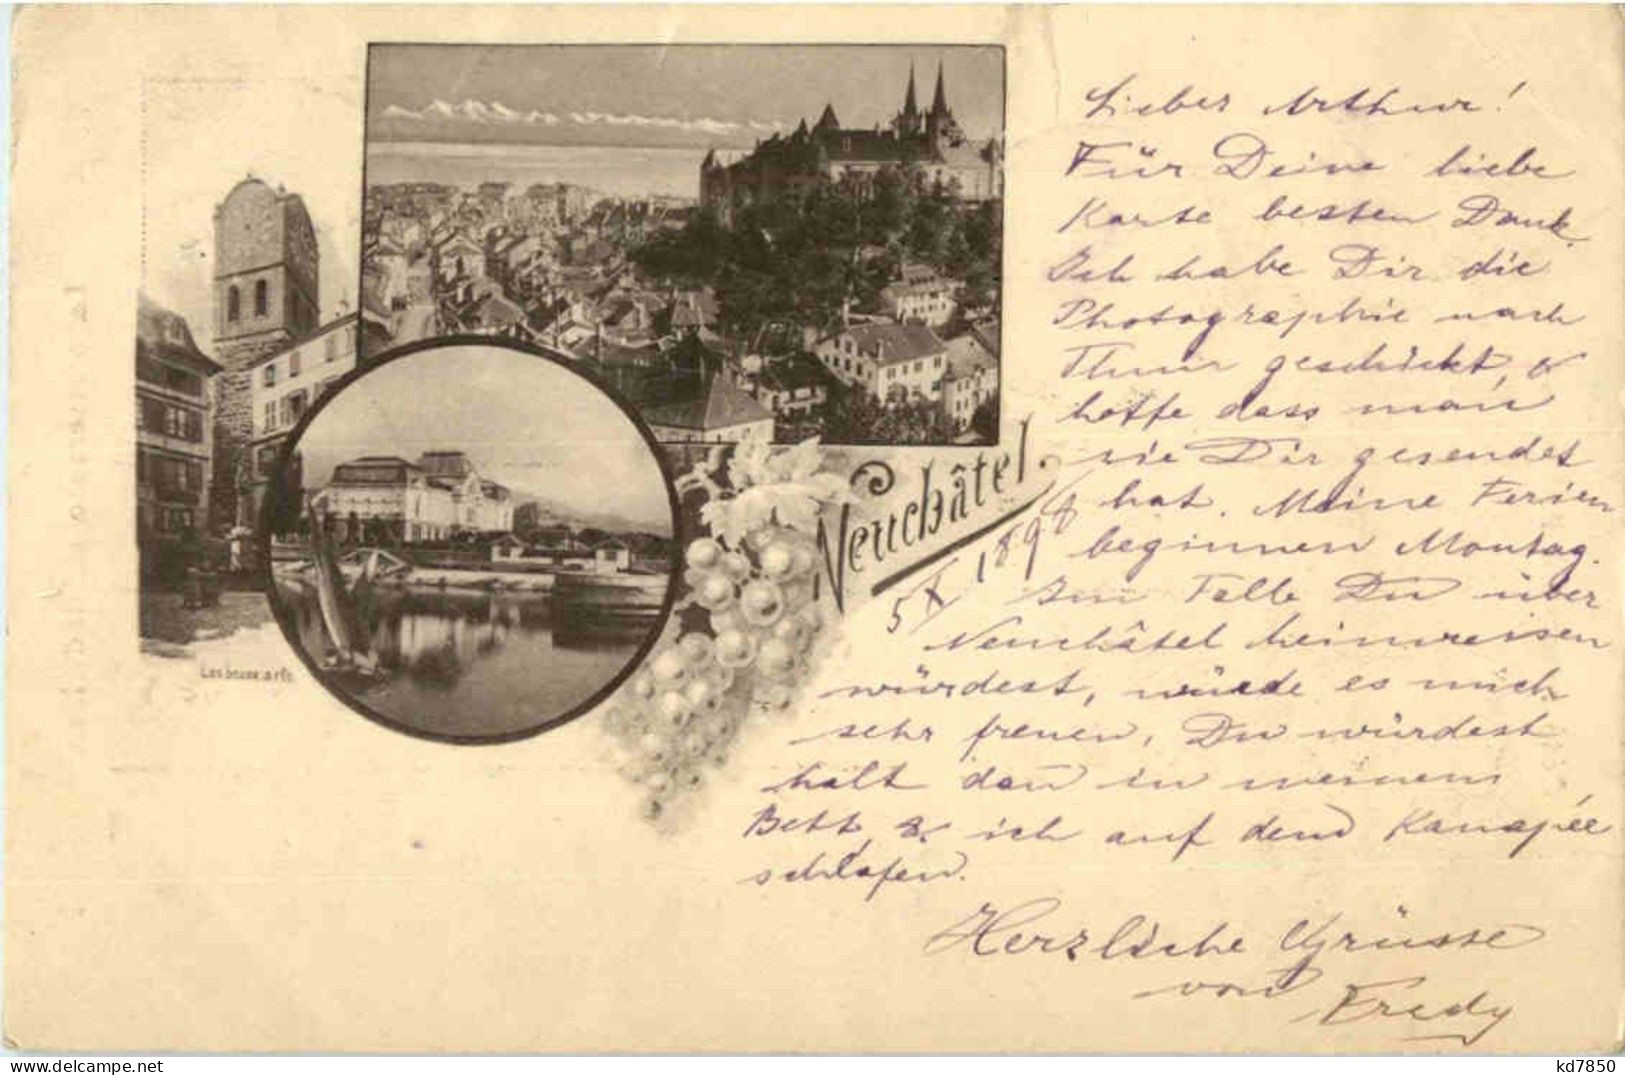 Lieber Arthur!
Für Deine liebe
Karte besten Dank.
Ich habe Dir die
Photographie nach
Thun geschickt, &
hoffe dass man
sie Dir gesendet
hat. Meine Ferien
beginnen Montag.
Im Falle Du über
Neuchâtel heimreisen
würdest, würde es mich
sehr freuen, Du würdest
halt dan in meinem
Bett & ich auf dem Kanapée
schlafen.
Herzliche Grüsse
von
Fredy
Neuchâtel.
5/X 1898
kd7850